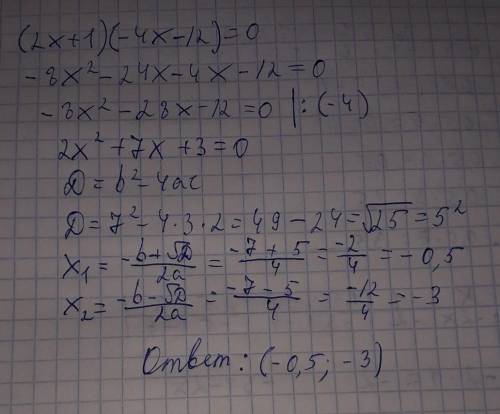 (2x+1)(-4x-12)=0
-8x²-24x-4x-12=0
-8x²-28x-12=0 |:(-4)
2x²+7x+3=0
D=b²-4ac
D=7²-4·3·2=49-24=√25=5²
x₁=(-b+√D)/2a=(-7+5)/4=-2/4=-0,5
x₂=(-b-√D)/2a=(-7-5)/4=-12/4=-3
Ответ: (-0,5; -3)